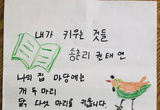 내가 키우는 것들
송촌리 권태연
나의 집 마당에는
개 두 마리
닭 다섯 마리를 키웁니다.